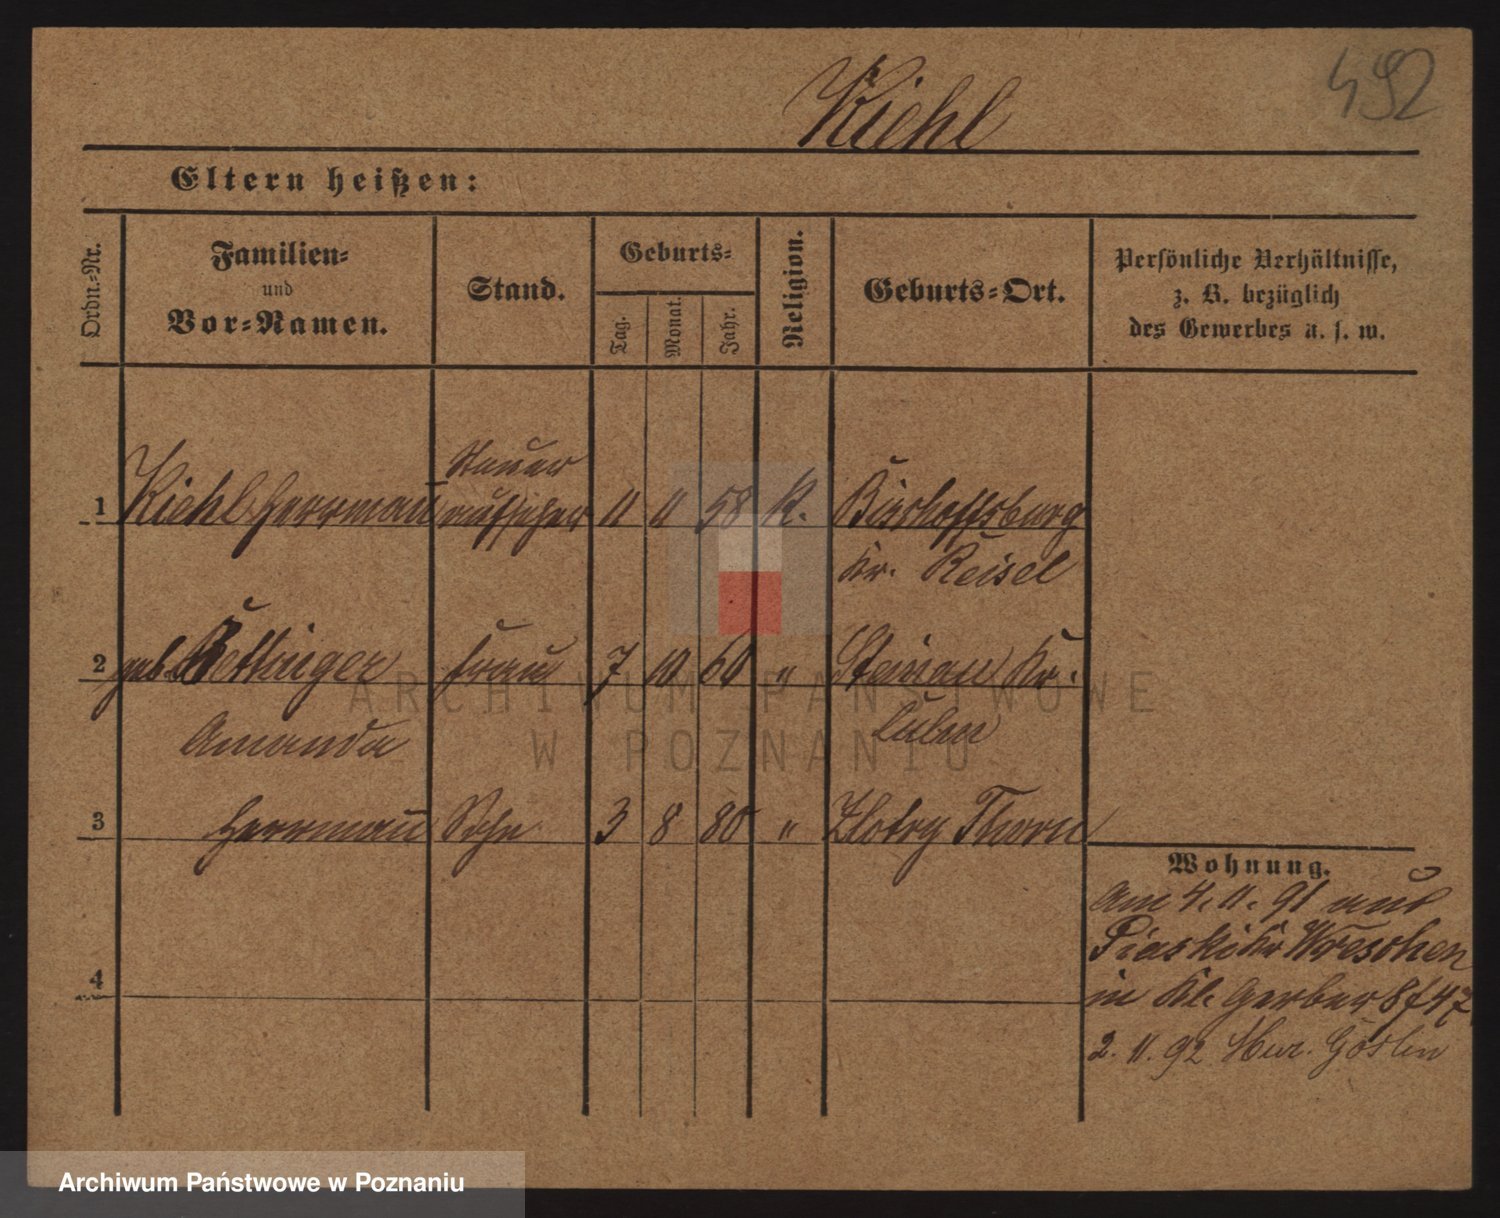 492
Kiehl
Eltern heißen:
Ordn.-Nr.
Familien-
und
Vor-Namen.
Stand.
Geburts-
Tag.
Monat.
Jahr.
Religion.
Geburts-Ort.
Persönliche Verhältnisse,
z. B. bezüglich
des Gewerbes u. s. w.
Steuer
1 Kiehl Herrmann aufseher 11 11 58 K. Bischoffsburg
Kr. Reisel
2 geb. Bettinger Frau 7 10 60 " Steinau Kr.
Amanda Luben
3 Herrmann Sohn 3 8 80 " Zlotry Thorn
4
Wohnung.
Am 4. 11. 91 aus
Piaski Kr Wreschen
in Kl. Gerber 8 f 47
2. 11. 92 Mur. Goslin
ARCHIWUM PAŃSTWOWE
W POZNANIU
Archiwum Państwowe w Poznaniu